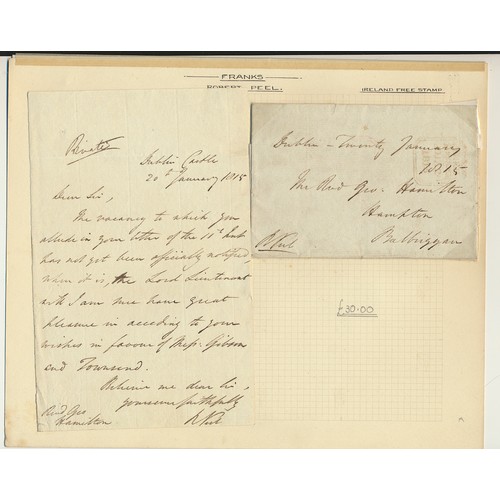 FRANKS
ROBERT PEEL.
IRELAND FREE STAMP
Private
Dublin Castle
20th January 1815
Dear Sir,
The vacancy to which you
allude in your letter of the 18th Inst
has not yet been officially notified,
when it is, the Lord Lieutenant
will I am sure have great
pleasure in acceding to your
wishes in favour of Messrs Gibson
and Townsend.
Believe me dear Sir,
yours very faithfully
R Peel
Revd Geo
Hamilton
Dublin - Twenty January
1815
The Revd Geo. Hamilton
Hampton
Balbriggan
R Peel
£30.00